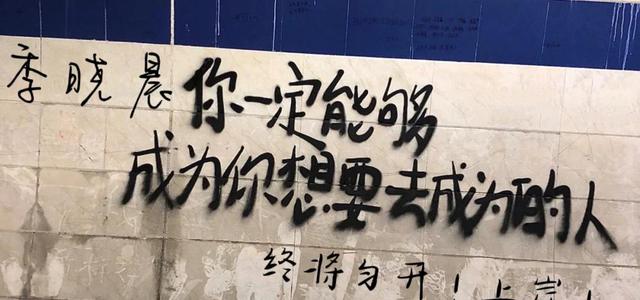 季晓晨
你一定能够
成为你想要去成为的人
终将